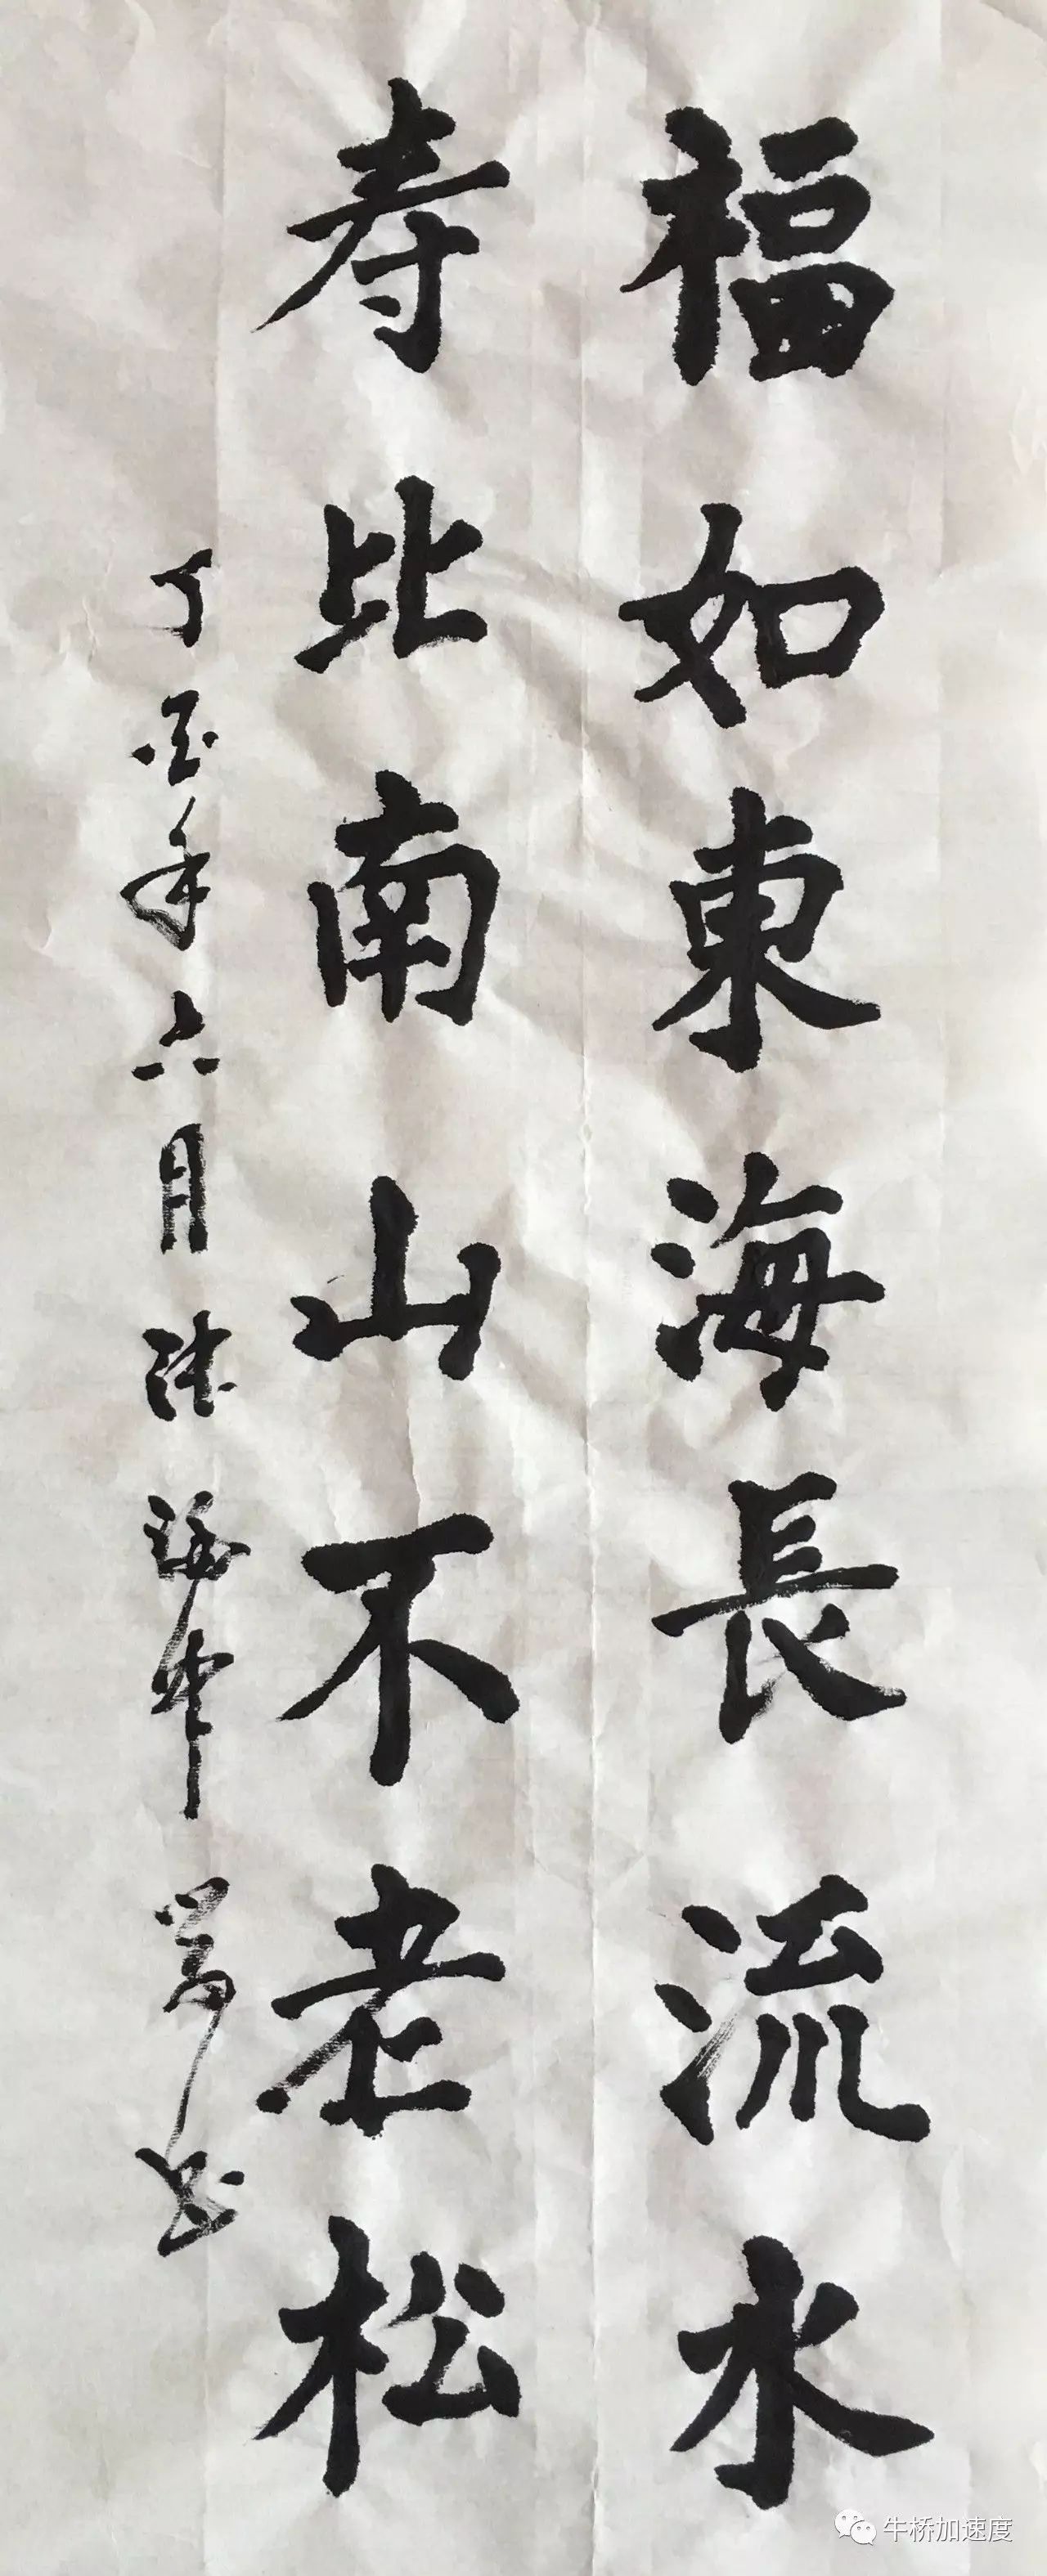 福如東海長流水
寿比南山不老松
丁酉年六月陆海峰書
牛桥加速度